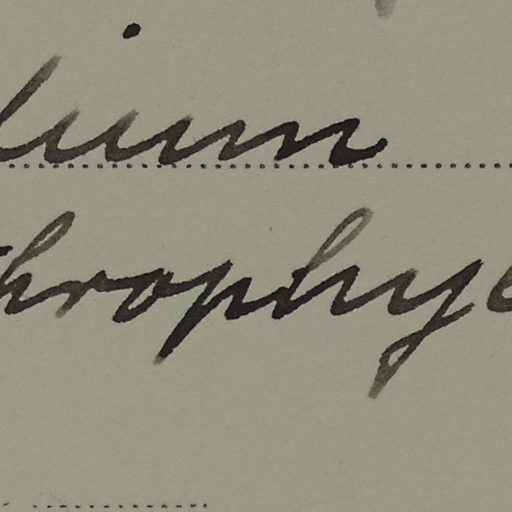 lium
throphye